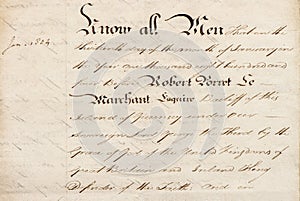 Know all Men that on the
day of the month of January in
the Year one thousand eight hundred and
four Before Robert Porret Le
Marchant Esquire Bailiff of this
Island of Guernsey under Our
Sovereign Lord George the Third by the
Grace of God of the United Kingdoms of
Great Britain and Ireland King
Defender of the Faith and in